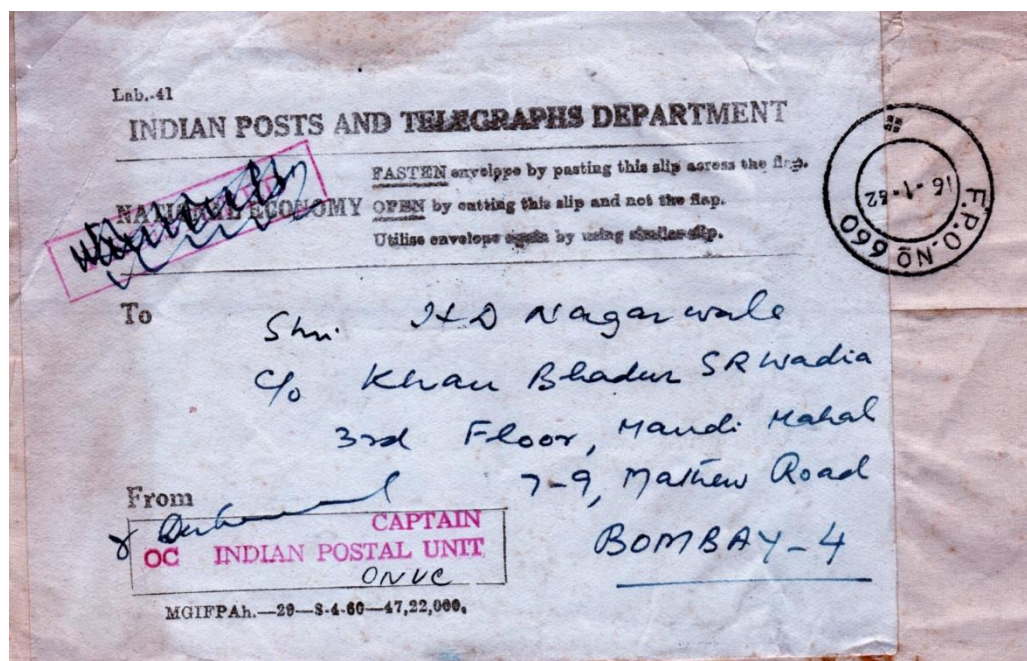 Lab.-41
INDIAN POSTS AND TELEGRAPHS DEPARTMENT
FASTEN envelope by pasting this slip across the flap.
NATIONAL ECONOMY OPEN by cutting this slip and not the flap.
Utilise envelope again by using similar slip.
F.P.O. NO 660
16-1-62
To
Shri H D Nagarwala
C/o Khan Bhadur SR Wadia
3rd Floor, Mandi Mahal
7-9, Mathew Road
BOMBAY-4
From
CAPTAIN
OC INDIAN POSTAL UNIT
ONUC
MGIFPAh.—29—8-4-60—47,22,000.